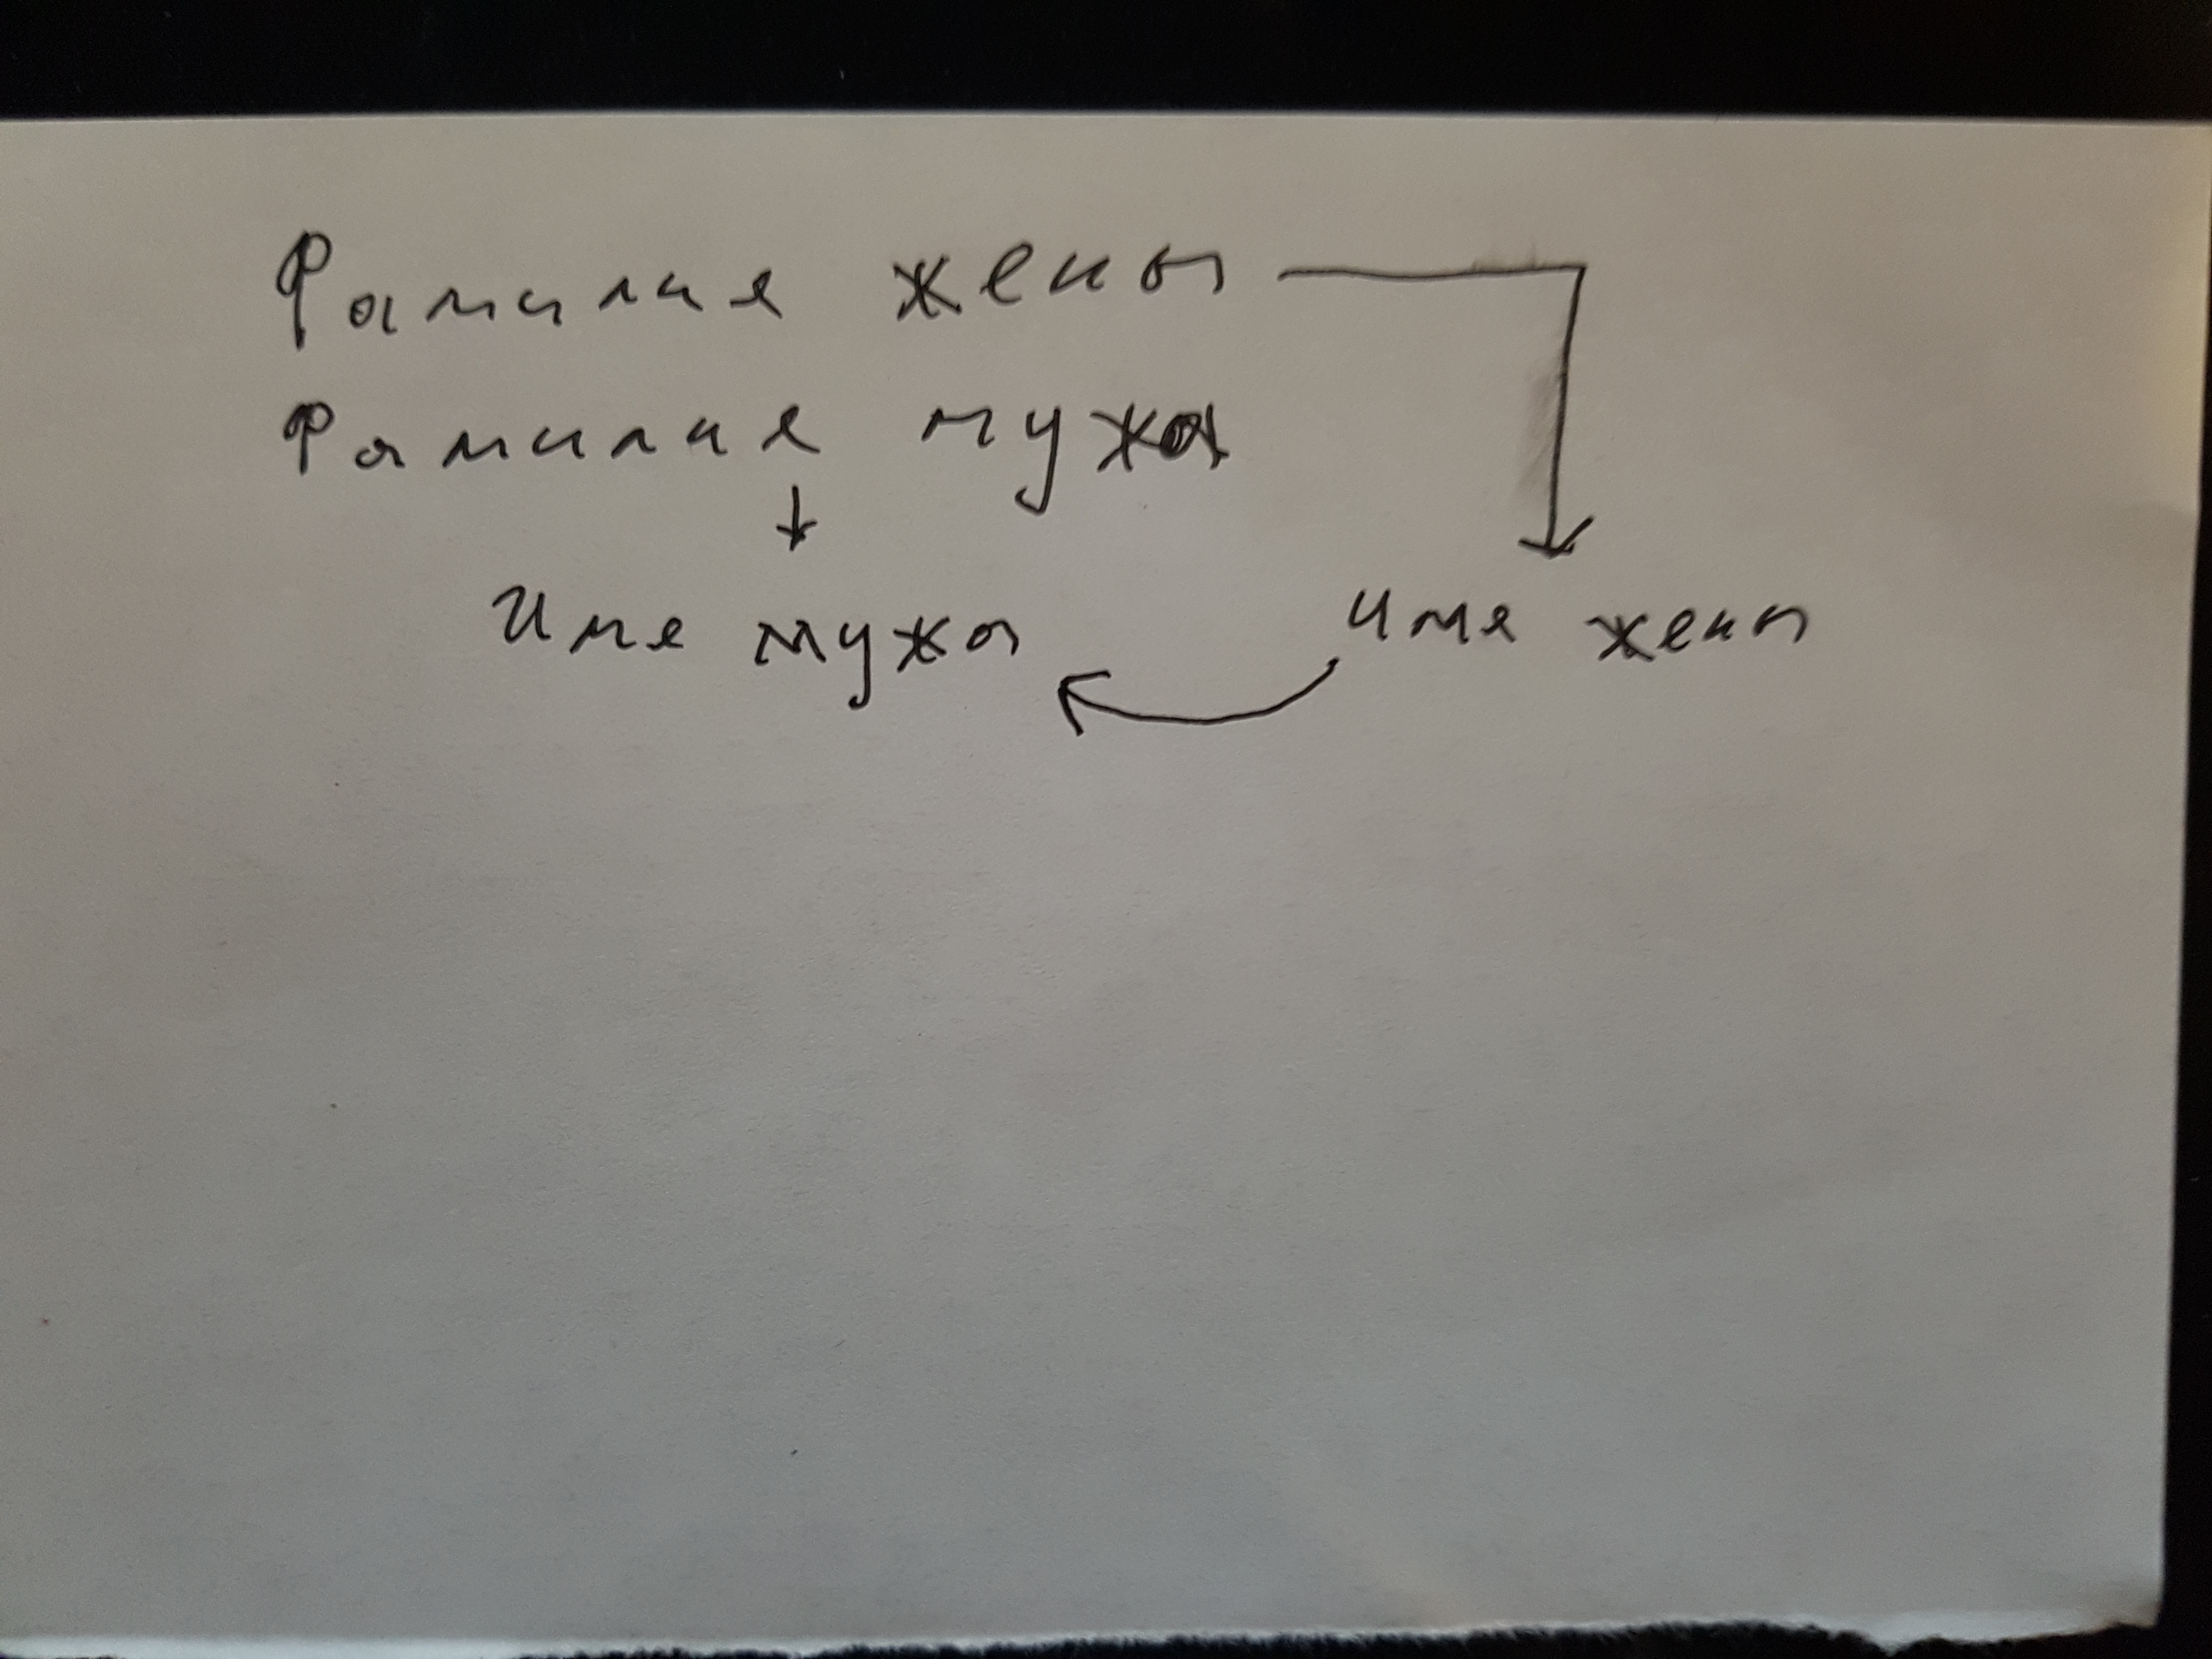 Фамилия жены
Фамилия мужа
Имя мужа имя жены